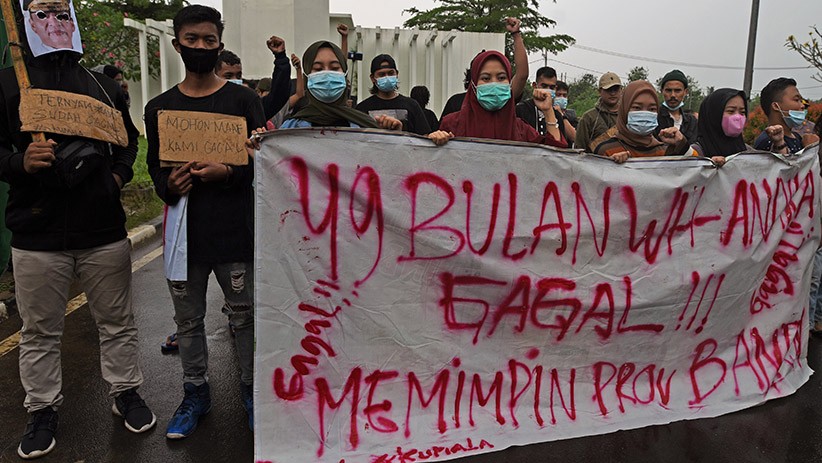 TERNYATA
SUDAH GAGAL
KUMALA
MOHON MAAF
KAMI GAGAL
49 BULAN WH-ANDIKA
GAGAL !!!
MEMIMPIN PROV BANTEN
Gagal !!!
Gagal !!!
KUMALA